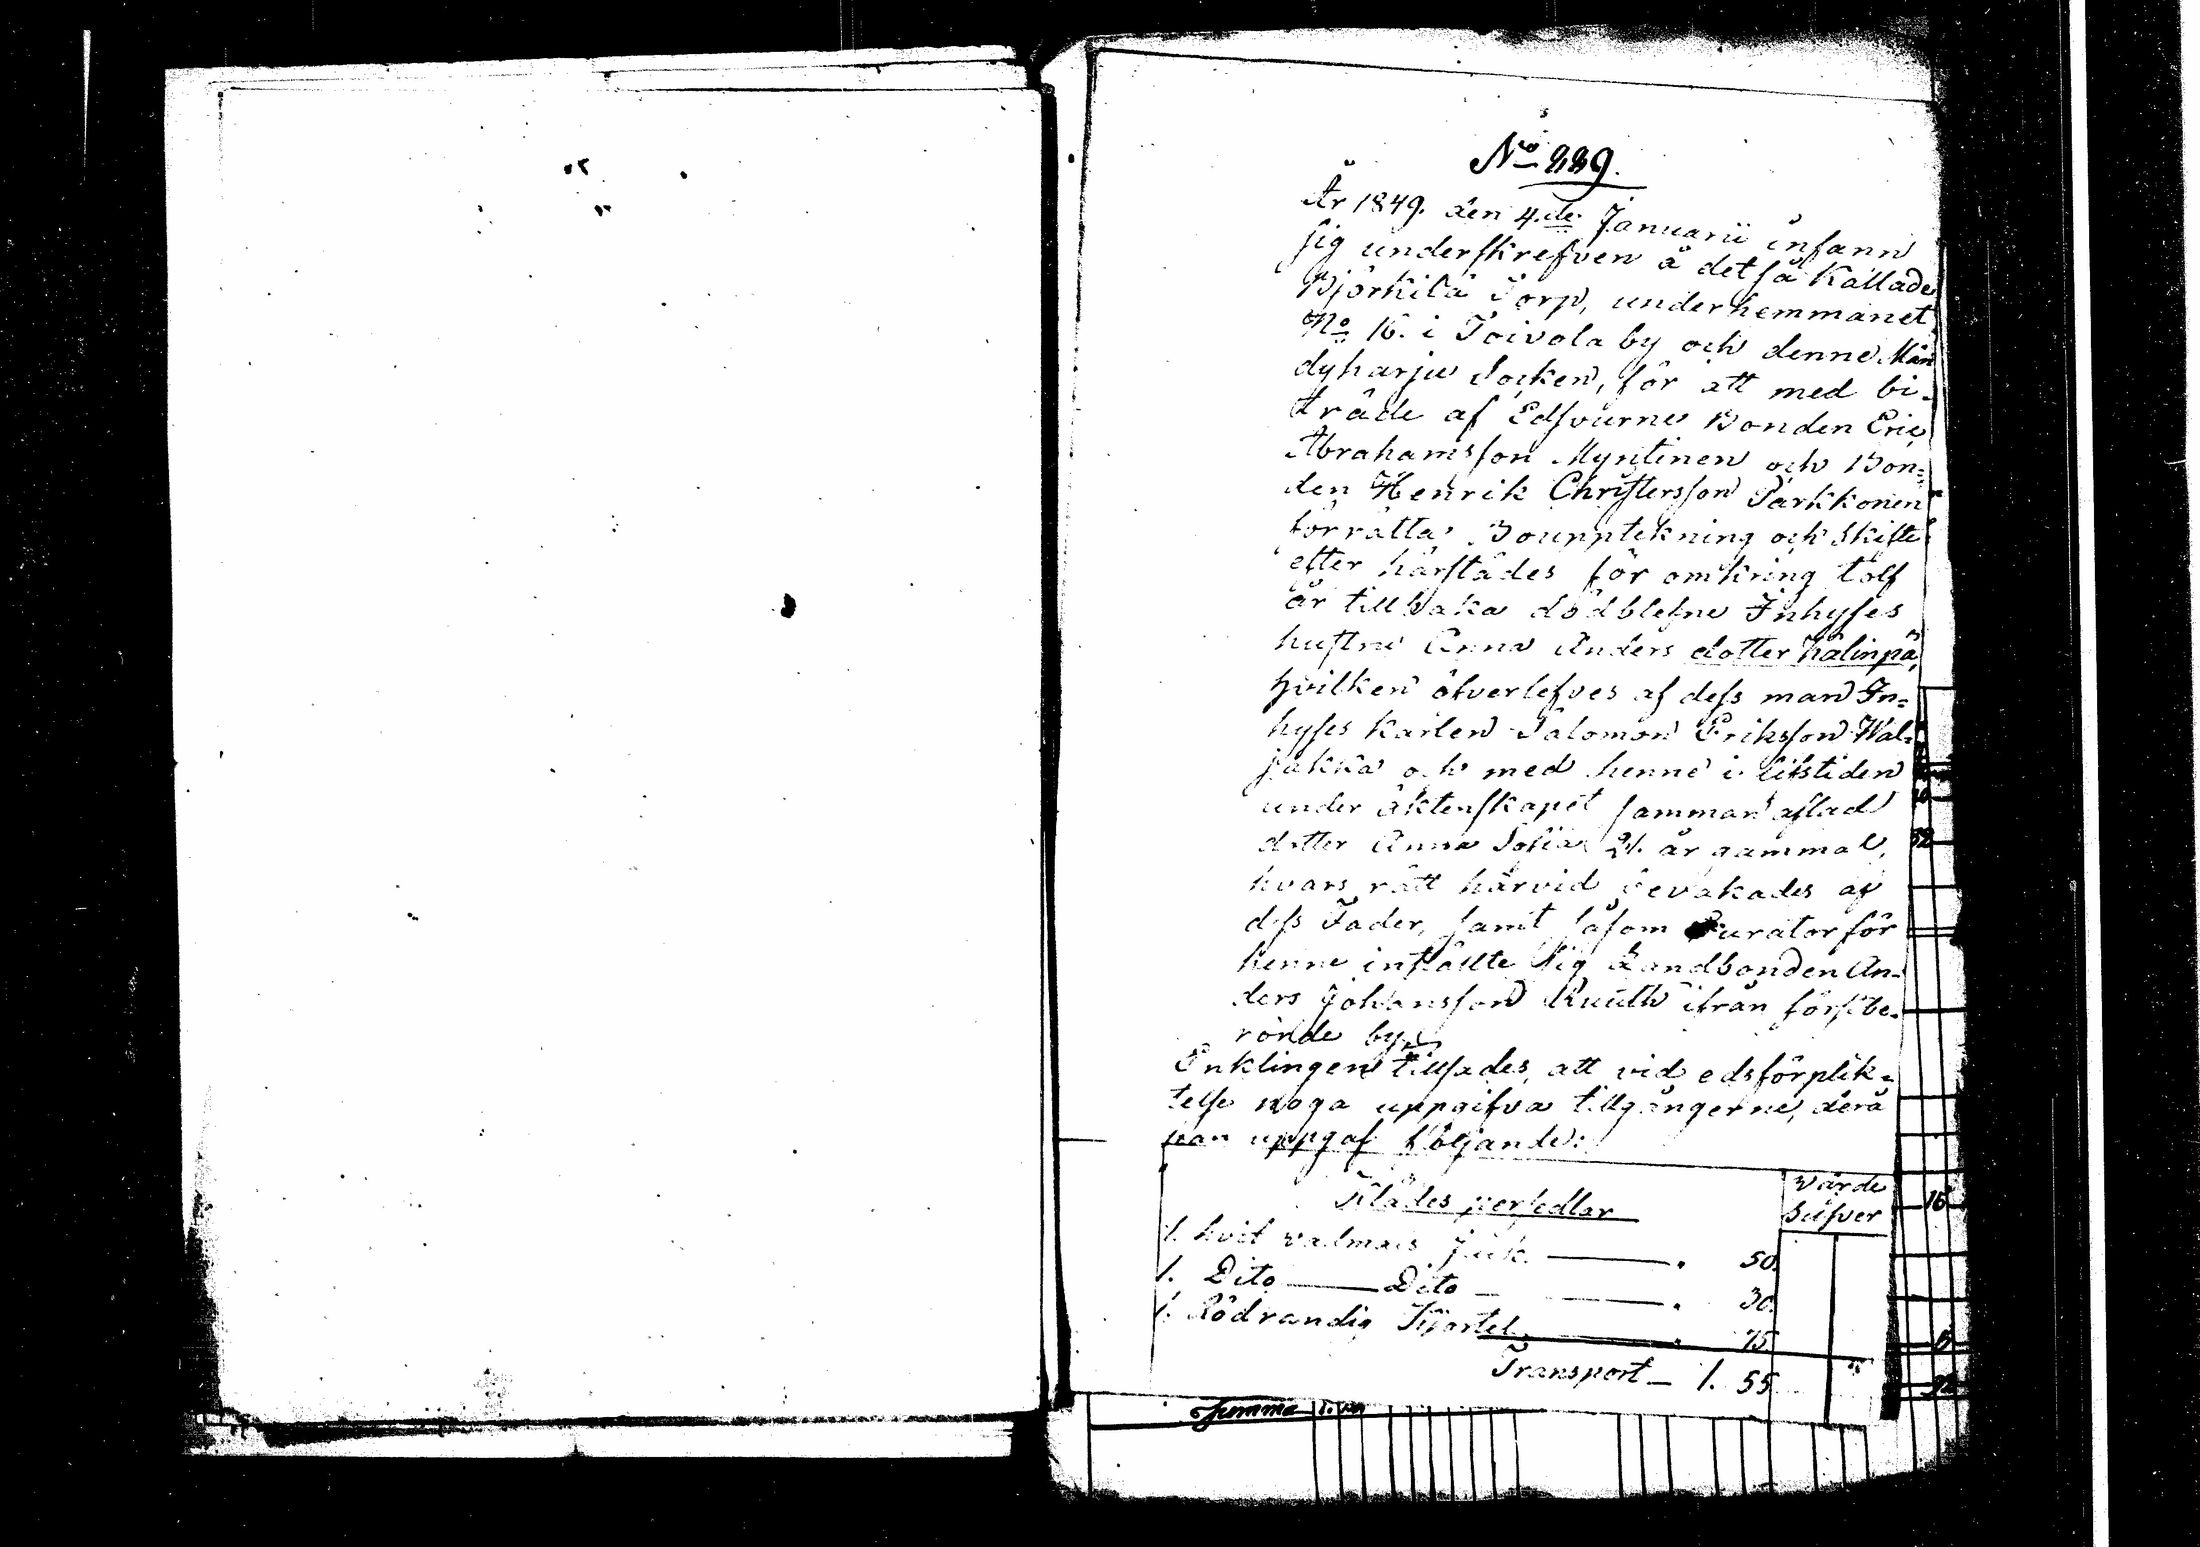 No 229.
År 1849. den 4.de Januarii infann
sig underskrefven å det så kallade
Björkilä Torp, under hemmanet
No 16. i Toivola by och denne Män
dyharju Socken, för att med bi-
träde af Edsvurne Bonden Eric
Abrahamsson Myntinen och Bon=
den Henrik Christersson Parkkonen
förrätta Bouppteckning och Skifte
efter härstädes för omkring tolf
år tillbaka dödblefne Inhyses
hustru Anna Anders dotter Hälinpä,
hvilken öfverlefves af dess man In=
hyses karlen Salomon Eriksson Wal=
jakka och med henne i lifstiden
under äktenskapet samman aflad
dotter Anna Sofia 21. år gammal,
hvars rätt härvid bevakades af
dess Fader, samt såsom Curator för
henne inställte sig Landbonden An-
ders Johansson Ruuth ifrån förstbe-
rörde by.
Enklingen tillsades, att vid edsförplik=
telse noga uppgifva tillgångerne, derå
han uppgaf följande:
Värde
Silfver
Klädes persedlar
1. hvit valmars jack 50.
1. Dito Dito 30.
1. Rödrandig Kjortel 75
Transport 1. 55
Summa